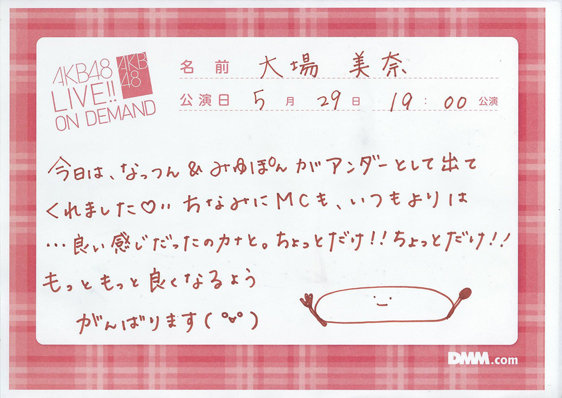 AKB48
LIVE!!
ON DEMAND
AKB
48
名前 大場 美奈
公演日 5月 29日 19:00 公演
今日は、なっつん&みゆぽんがアンダーとして出て
くれました♡‥ ちなみにMCも、いつもよりは
…良い感じだったのカナと。ちょっとだけ!!ちょっとだけ!!
もっともっと良くなるよう
がんばります(°∀°)
DMM.com